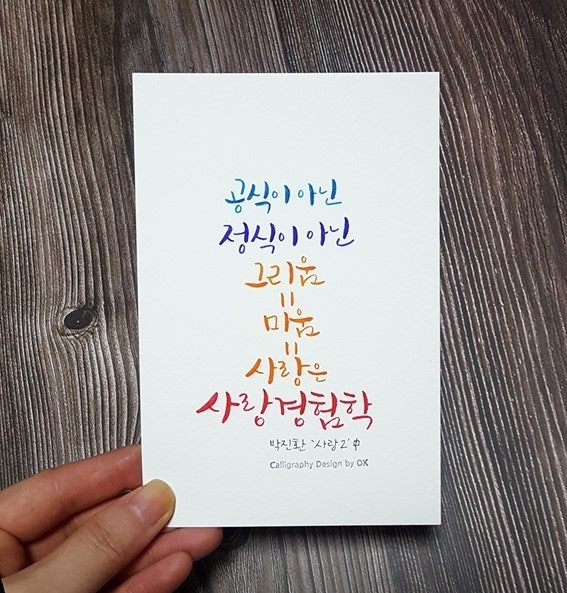 공식이 아닌
정식이 아닌
그리움
=
미움
=
사랑은
사랑경험학
박진환 '사랑2' 中
Calligraphy Design by OK